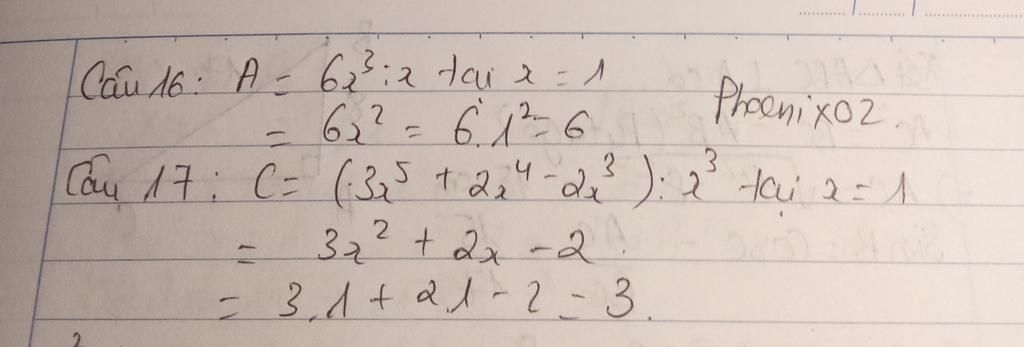 Câu 16: A = 6x³ : x tại x = 1
= 6x² = 6.1² = 6
Phoenix02.
Câu 17: C = (3x⁵ + 2x⁴ - 2x³) : x³ tại x = 1
= 3x² + 2x - 2.
= 3.1 + 2.1 - 2 = 3.